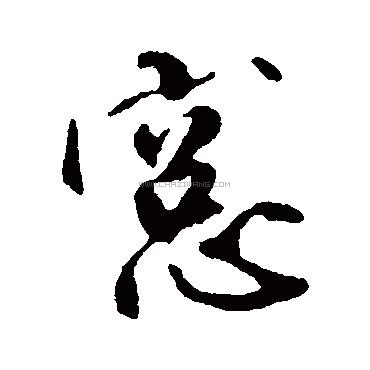 窓
WWW.CHAZIWANG.COM